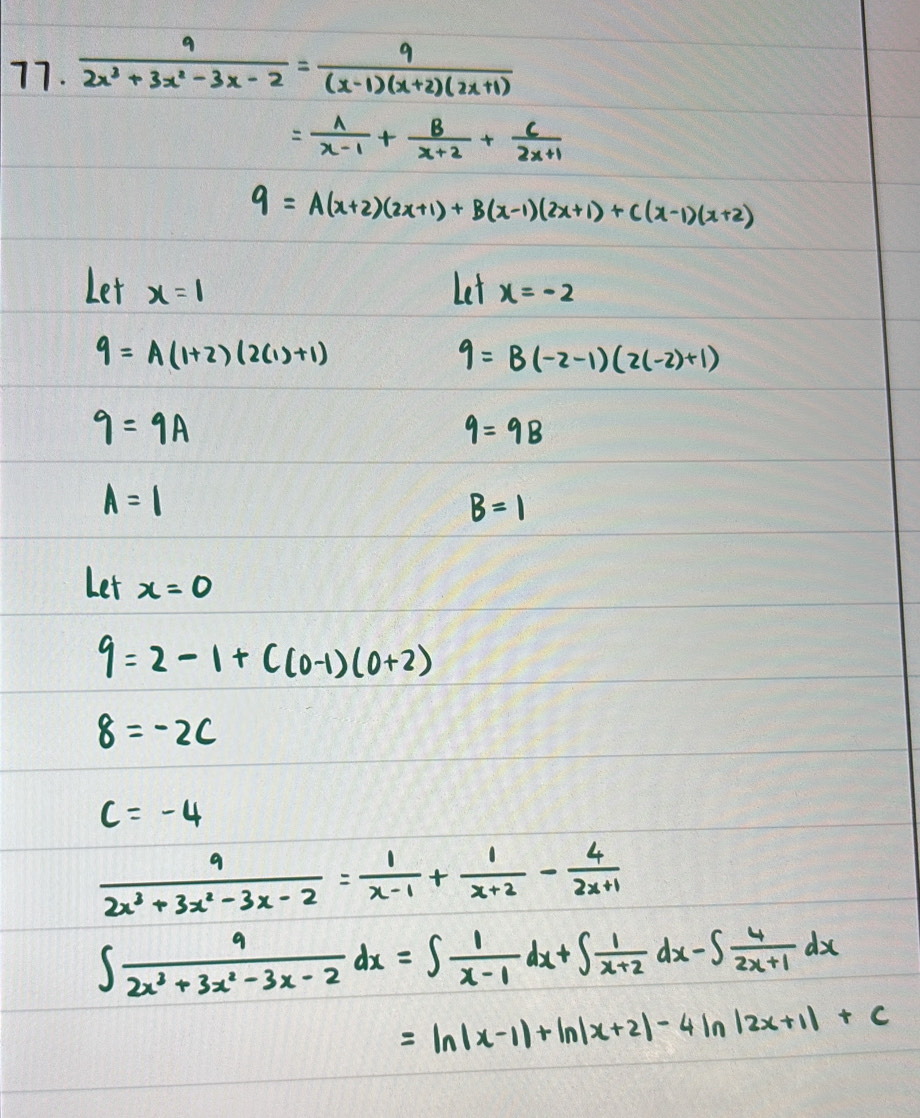 77. 9/(2x³ + 3x² - 3x - 2) = 9/((x-1)(x+2)(2x+1))
= A/(x-1) + B/(x+2) + C/(2x+1)
9 = A(x+2)(2x+1) + B(x-1)(2x+1) + C(x-1)(x+2)
Let x = 1
9 = A(1+2)(2(1)+1)
9 = 9A
A = 1
Let x = -2
9 = B(-2-1)(2(-2)+1)
9 = 9B
B = 1
Let x = 0
9 = 2 - 1 + C(0-1)(0+2)
8 = -2C
C = -4
9/(2x³ + 3x² - 3x - 2) = 1/(x-1) + 1/(x+2) - 4/(2x+1)
∫ 9/(2x³ + 3x² - 3x - 2) dx = ∫ 1/(x-1) dx + ∫ 1/(x+2) dx - ∫ 4/(2x+1) dx
= ln|x-1| + ln|x+2| - 4 ln|2x+1| + C